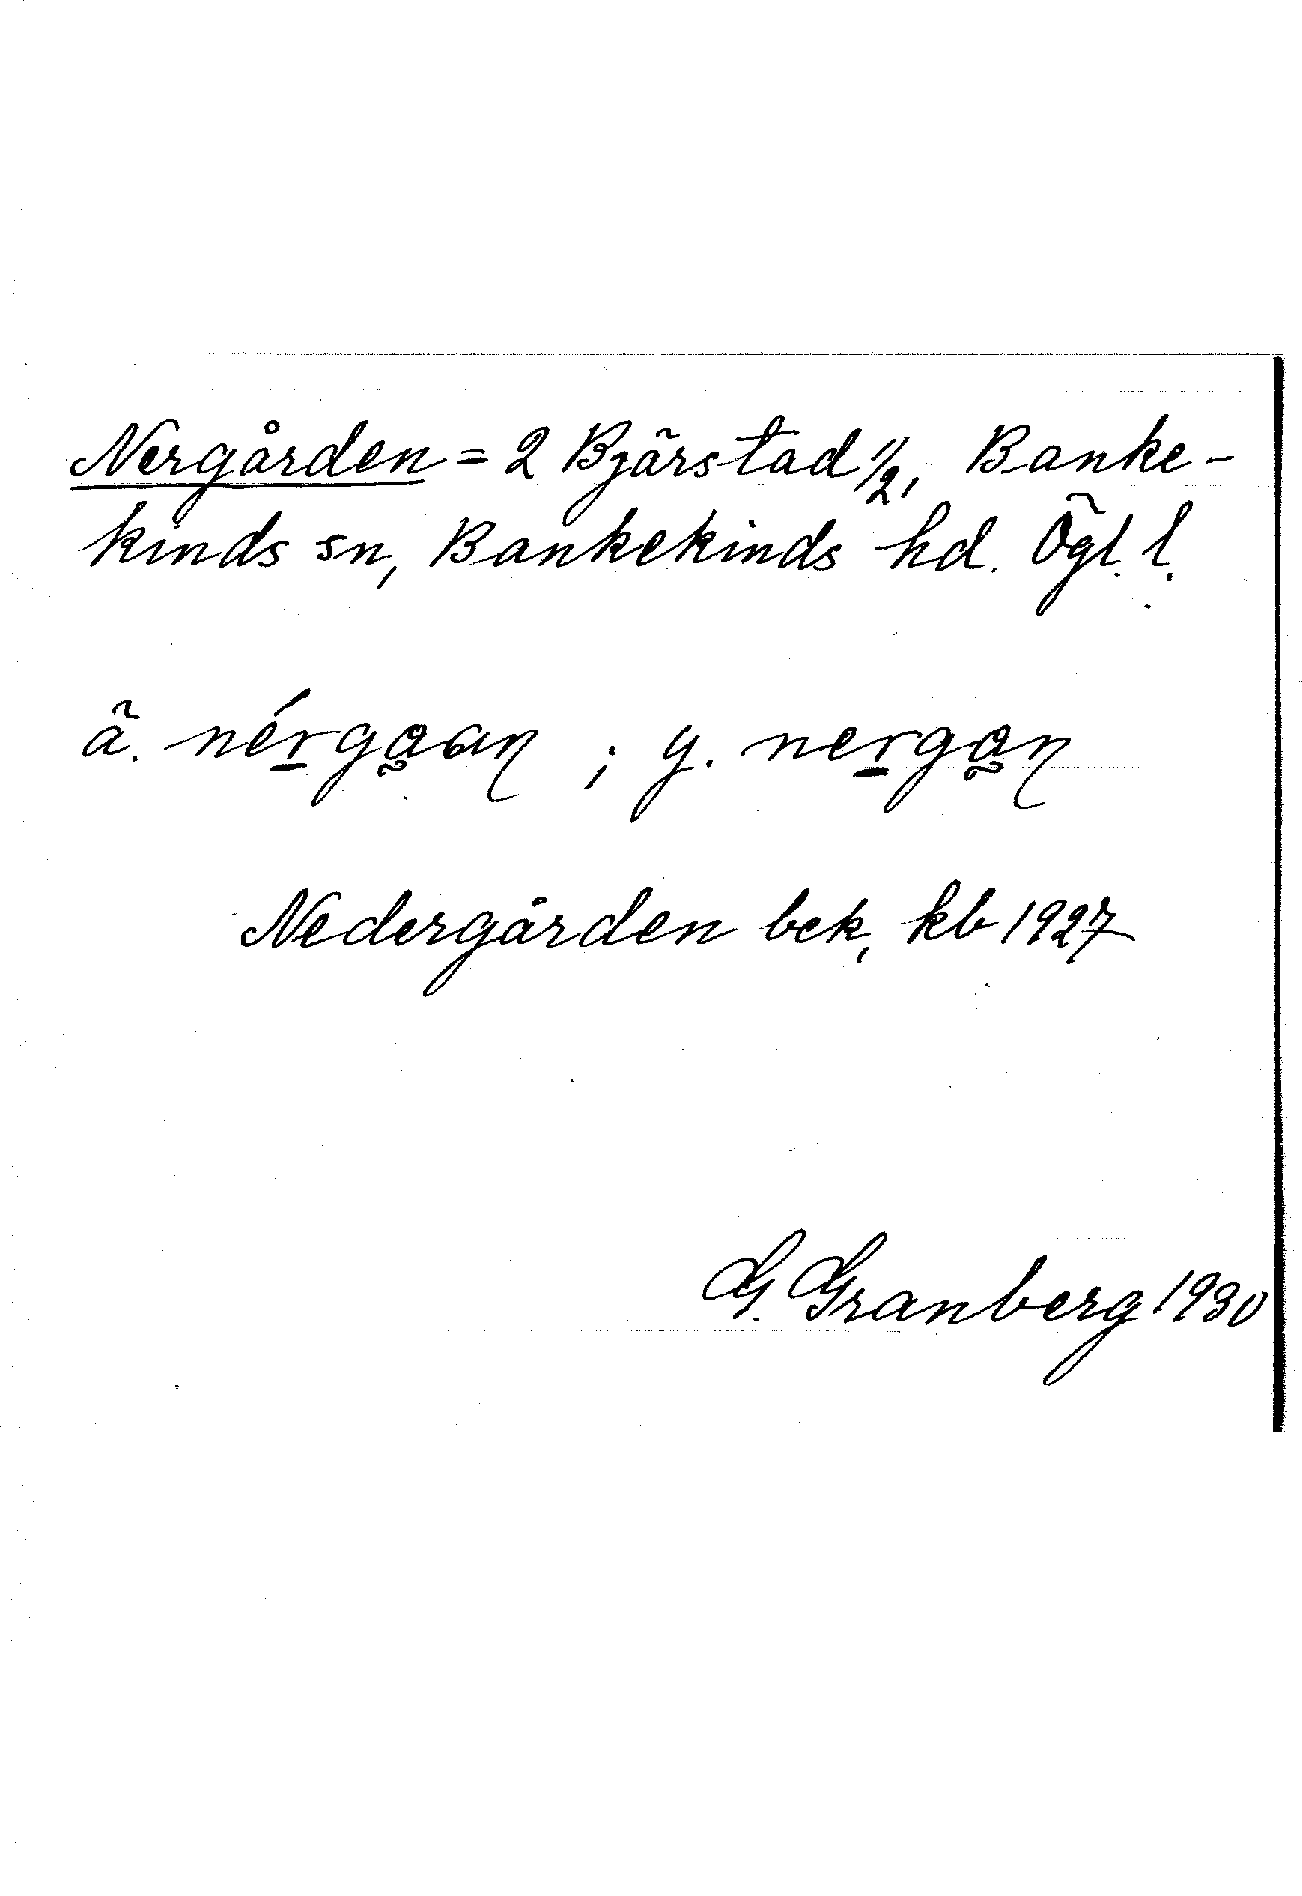 Nergården = 2 Bjärstad 1/2, Banke-
kinds sn, Bankekinds hd. Ögl. l.
ä. nérgaan ; y. nergan
Nedergården bek, kb 1927
G. Granberg 1930